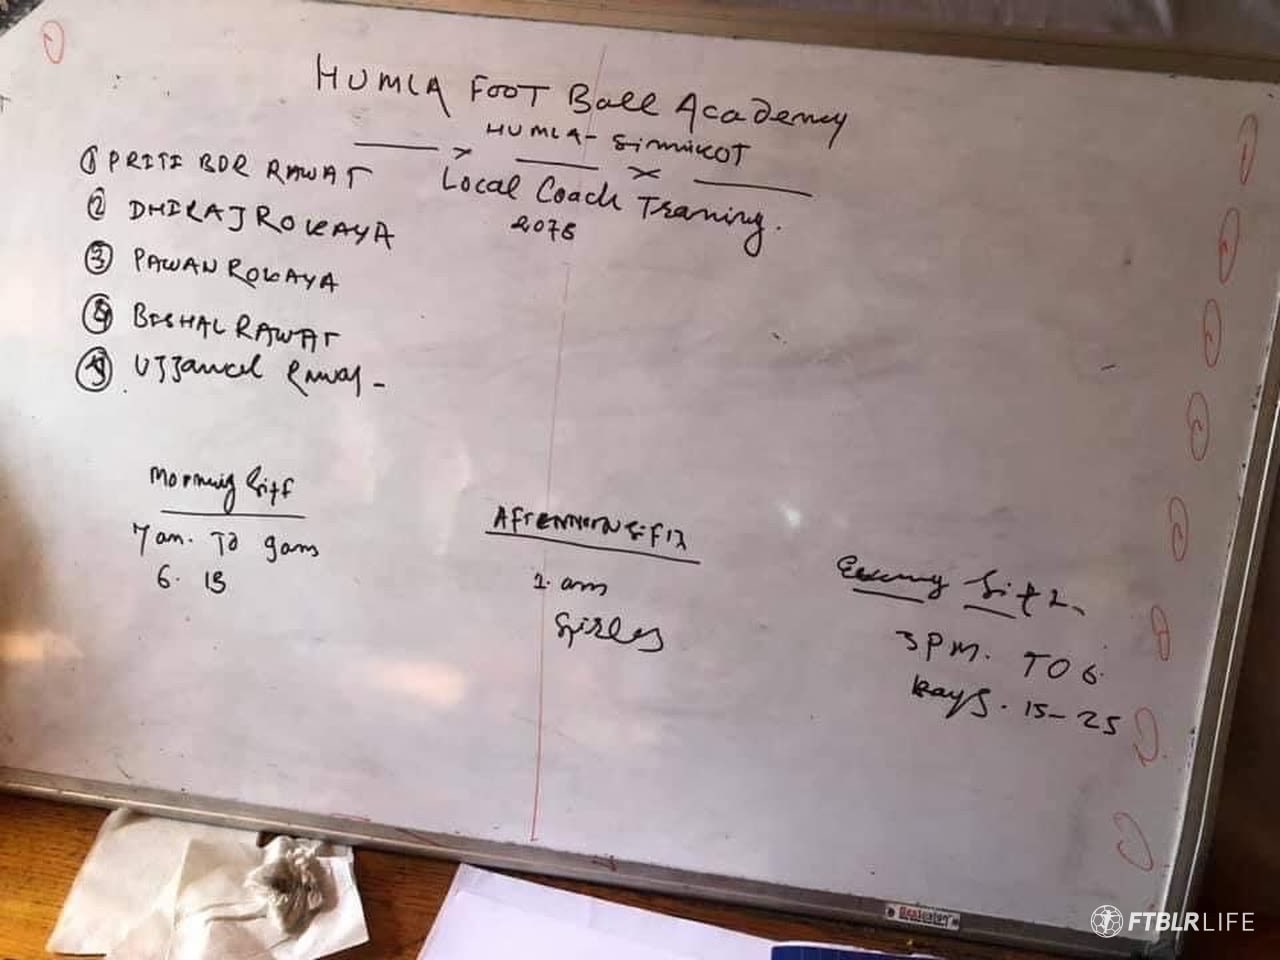 HUMLA FOOT Ball Academy
HUMLA- SiMiKOT
Local Coach Traning.
2078
① PRITI BDR RAWAT
② DHIRAJ ROKAYA
③ PAWAN ROKAYA
④ BISHAL RAWAT
⑤
Morning Siff
7 am. TO 9am
6. 15
AFTERNNON SiFIX
1. am
Evening
3 PM. TO 6.
Bays. 15-25
FTBLRLIFE